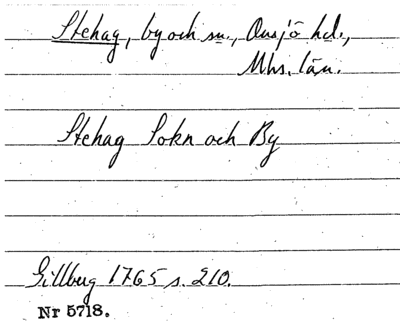 Stehag, by och sn., Onsjö hd.,
Mhs. län.
Stehag Sokn och By
Gillberg 1765 s. 210.
Nr 5718.